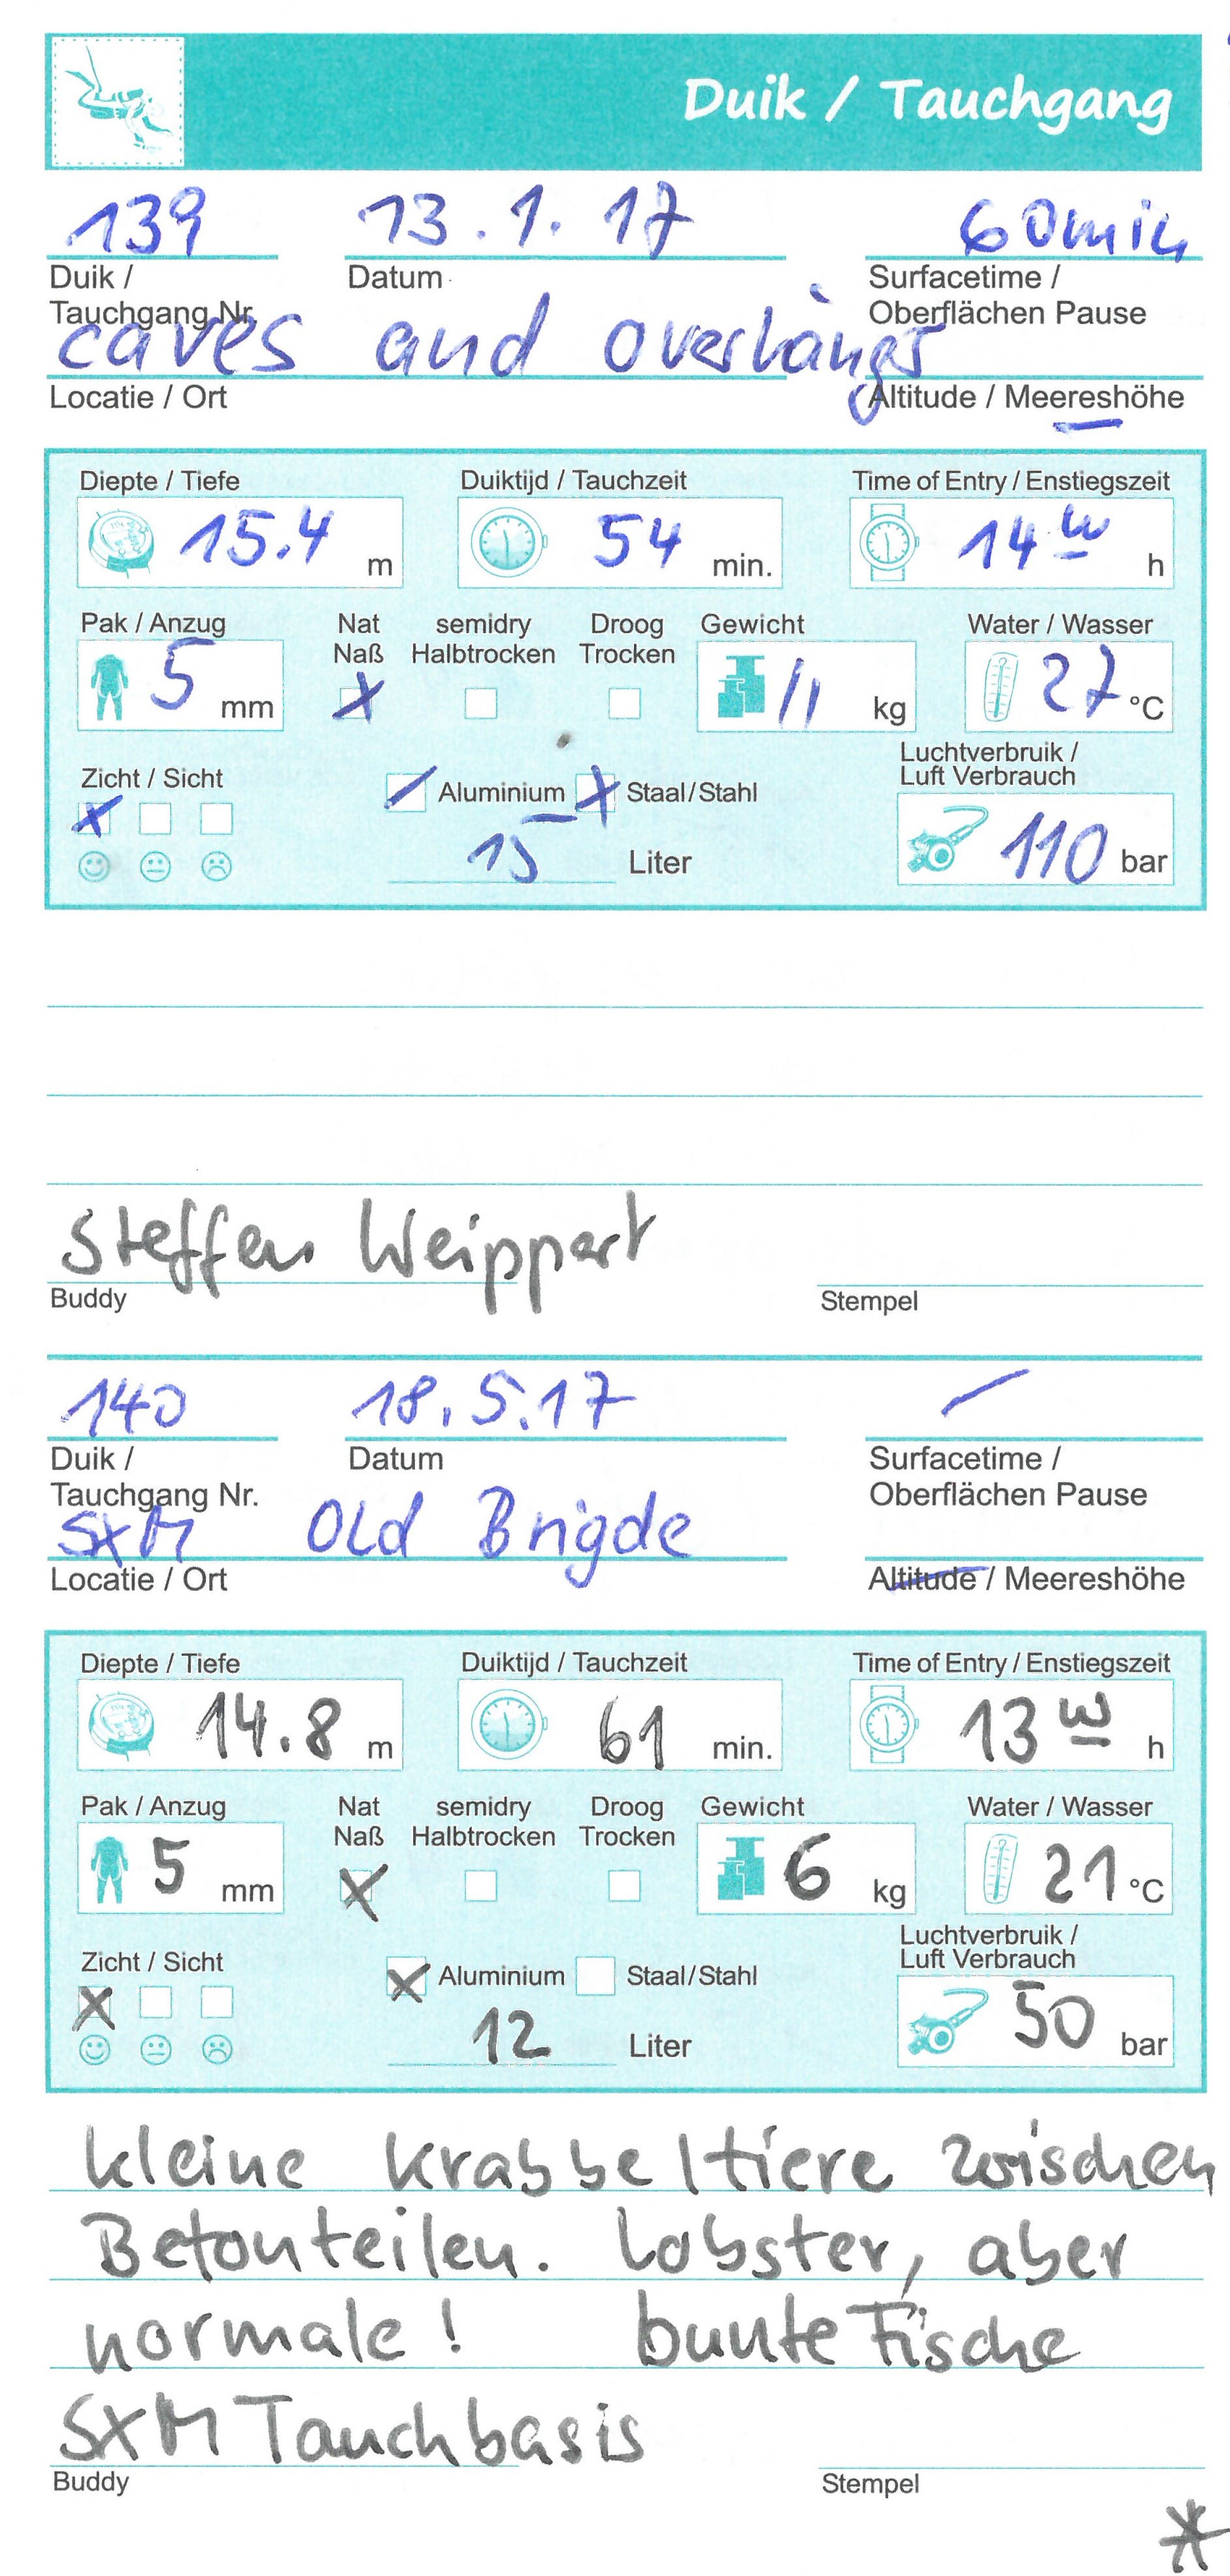 Duik / Tauchgang
139 13.1.17 60min
Duik / Datum Surfacetime /
Tauchgang Nr. Oberflächen Pause
caves and overhänger
Locatie / Ort Altitude / Meereshöhe
Diepte / Tiefe Duiktijd / Tauchzeit Time of Entry / Enstiegszeit
15.4 m 54 min. 14 h
Pak / Anzug Nat semidry Droog Gewicht Water / Wasser
Naß Halbtrocken Trocken
5 mm X 11 kg 27 °C
Luchtverbruik /
Zicht / Sicht Luft Verbrauch
X Aluminium X Staal/Stahl
15 Liter 110 bar
Steffen Weippert
Buddy Stempel
140 18.5.17 /
Duik / Datum Surfacetime /
Tauchgang Nr. Oberflächen Pause
SXM Old Brigde
Locatie / Ort Altitude / Meereshöhe
Diepte / Tiefe Duiktijd / Tauchzeit Time of Entry / Enstiegszeit
14.8 m 61 min. 13 h
Pak / Anzug Nat semidry Droog Gewicht Water / Wasser
Naß Halbtrocken Trocken
5 mm X 6 kg 21 °C
Luchtverbruik /
Zicht / Sicht Luft Verbrauch
X X Aluminium Staal/Stahl
12 Liter 50 bar
kleine Krabbeltiere zwischen
Betonteilen. Lobster, aber
normale! bunte Fische
SXM Tauchbasis
Buddy Stempel
*